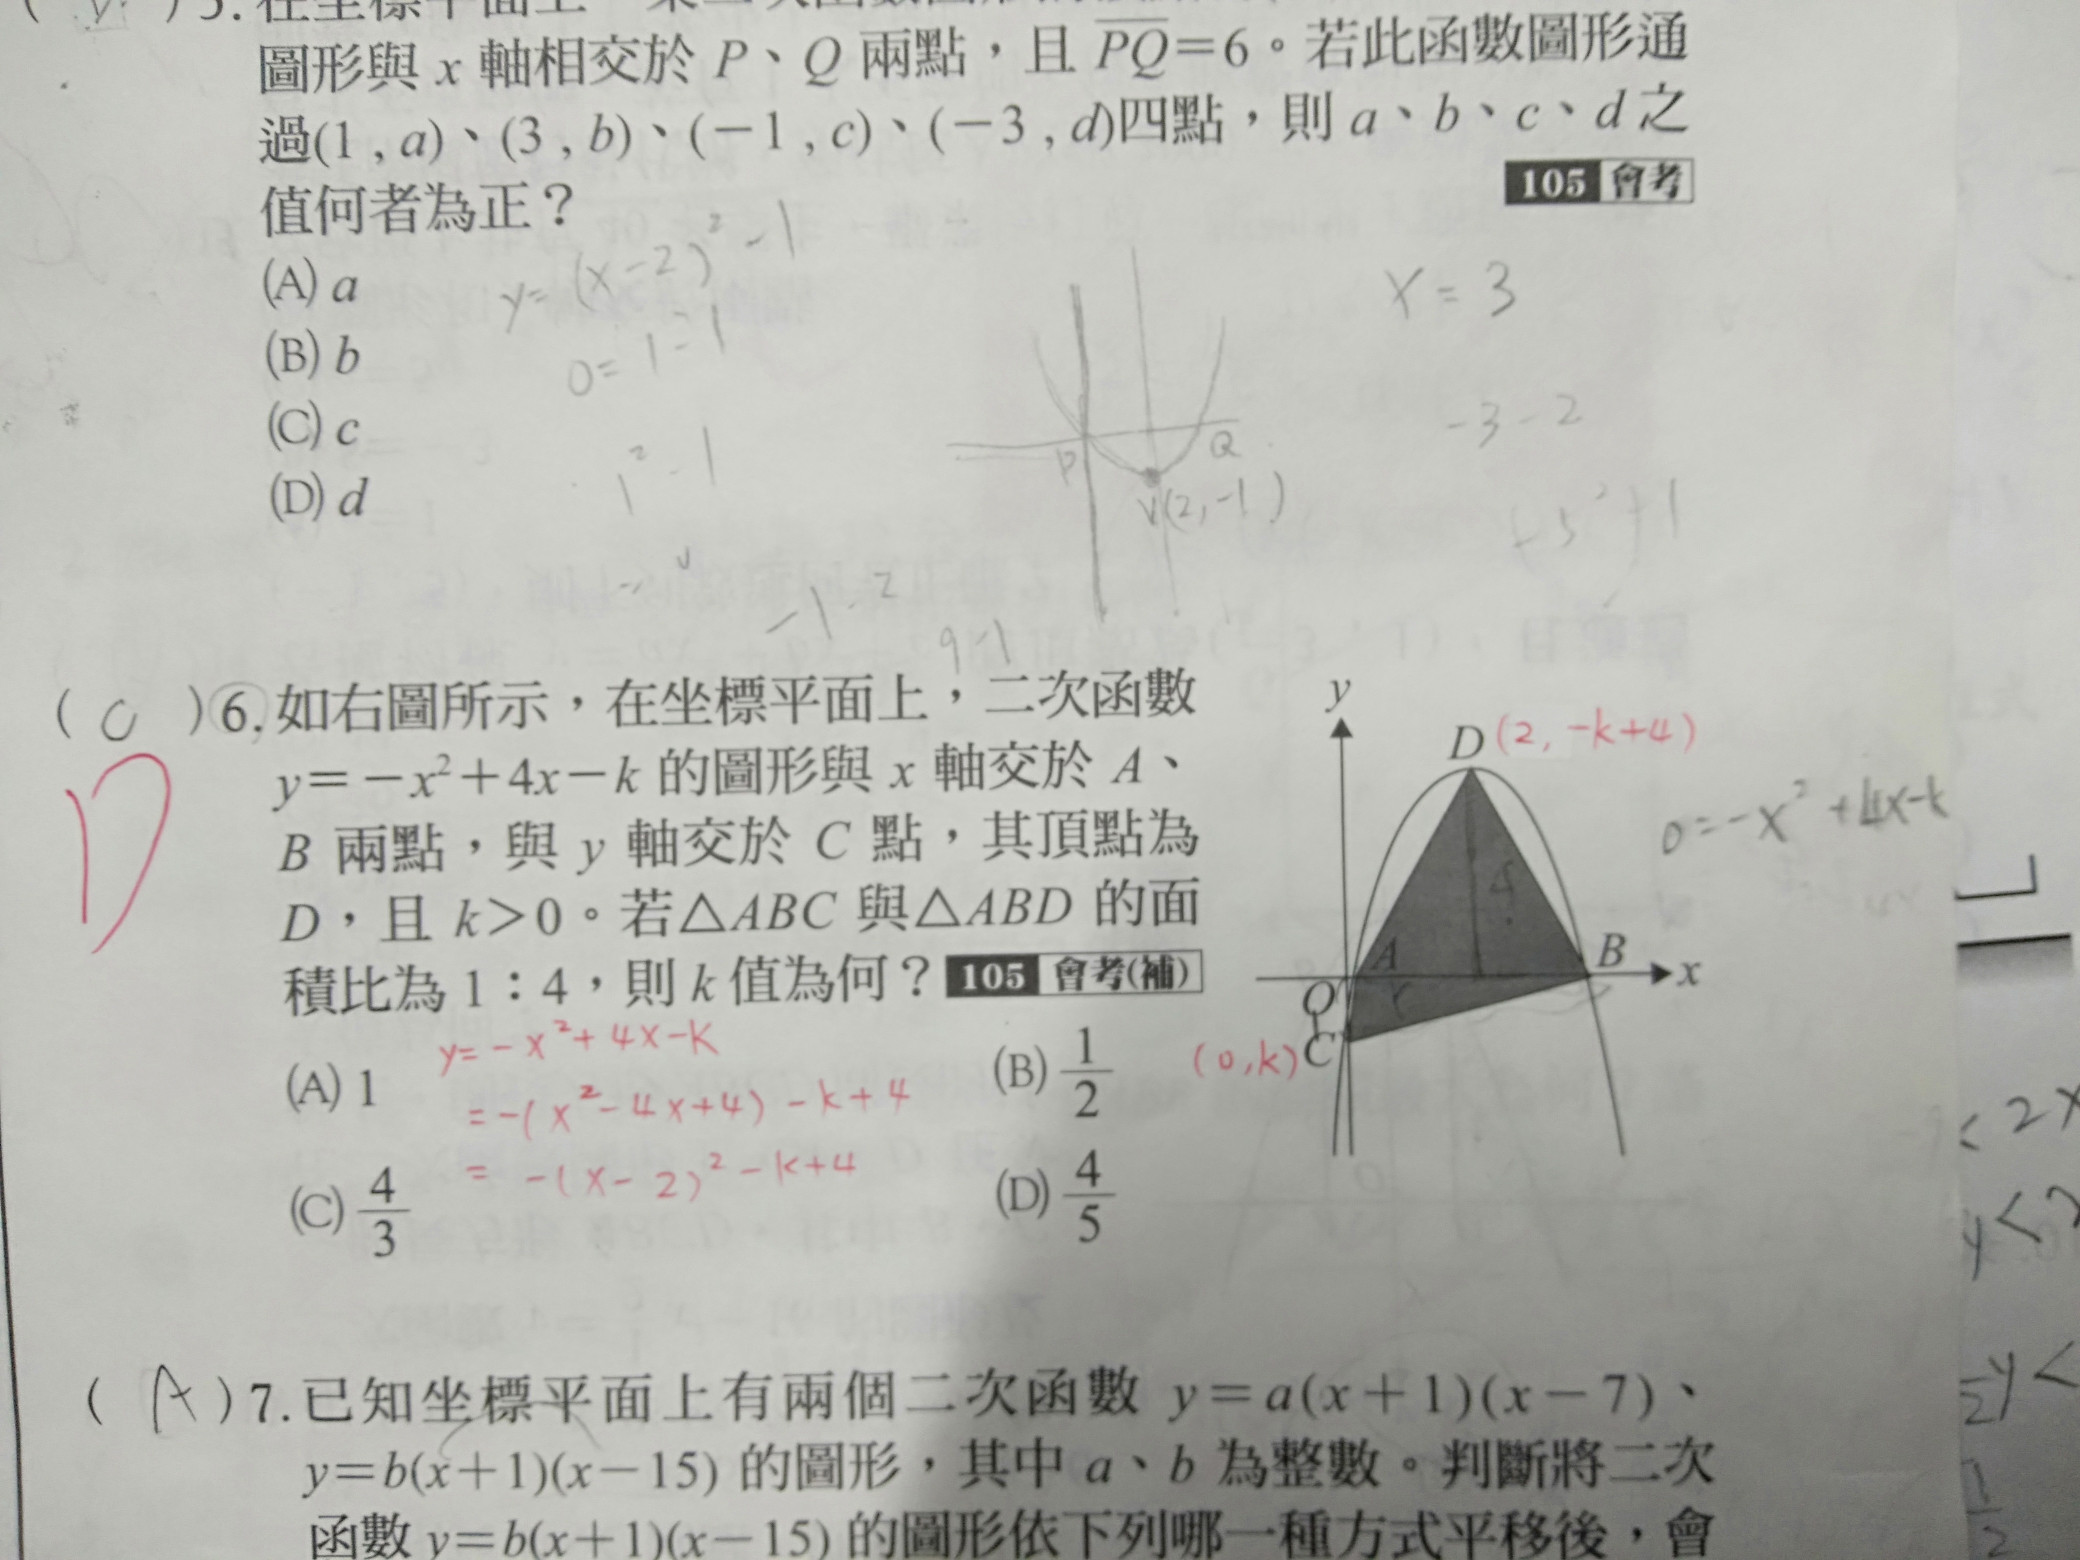 5. 在坐標平面上
圖形與 x 軸相交於 P、Q 兩點，且 PQ=6。若此函數圖形通
過(1 , a)、(3 , b)、(-1 , c)、(-3 , d)四點，則 a、b、c、d 之
值何者為正？
105 會考
(A) a
(B) b
(C) c
(D) d
y=(x-2)²-1
0=1-1
1²-1
P
Q
V(2,-1)
x=3
-3-2
-1-2
9-1
( C )6. 如右圖所示，在坐標平面上，二次函數
D
y=-x²+4x-k 的圖形與 x 軸交於 A、
B 兩點，與 y 軸交於 C 點，其頂點為
D，且 k>0。若△ABC 與△ABD 的面
積比為 1：4，則 k 值為何？ 105 會考(補)
(A) 1
(B) 1/2
(C) 4/3
(D) 4/5
y=-x²+4x-k
=-(x²-4x+4)-k+4
=-(x-2)²-k+4
y
D (2, -k+4)
0=-x²+4x-k
4
A
B
x
O
1
(0,k) C
( A )7. 已知坐標平面上有兩個二次函數 y=a(x+1)(x-7)、
y=b(x+1)(x-15) 的圖形，其中 a、b 為整數。判斷將二次
函數 y=b(x+1)(x-15) 的圖形依下列哪一種方式平移後，會